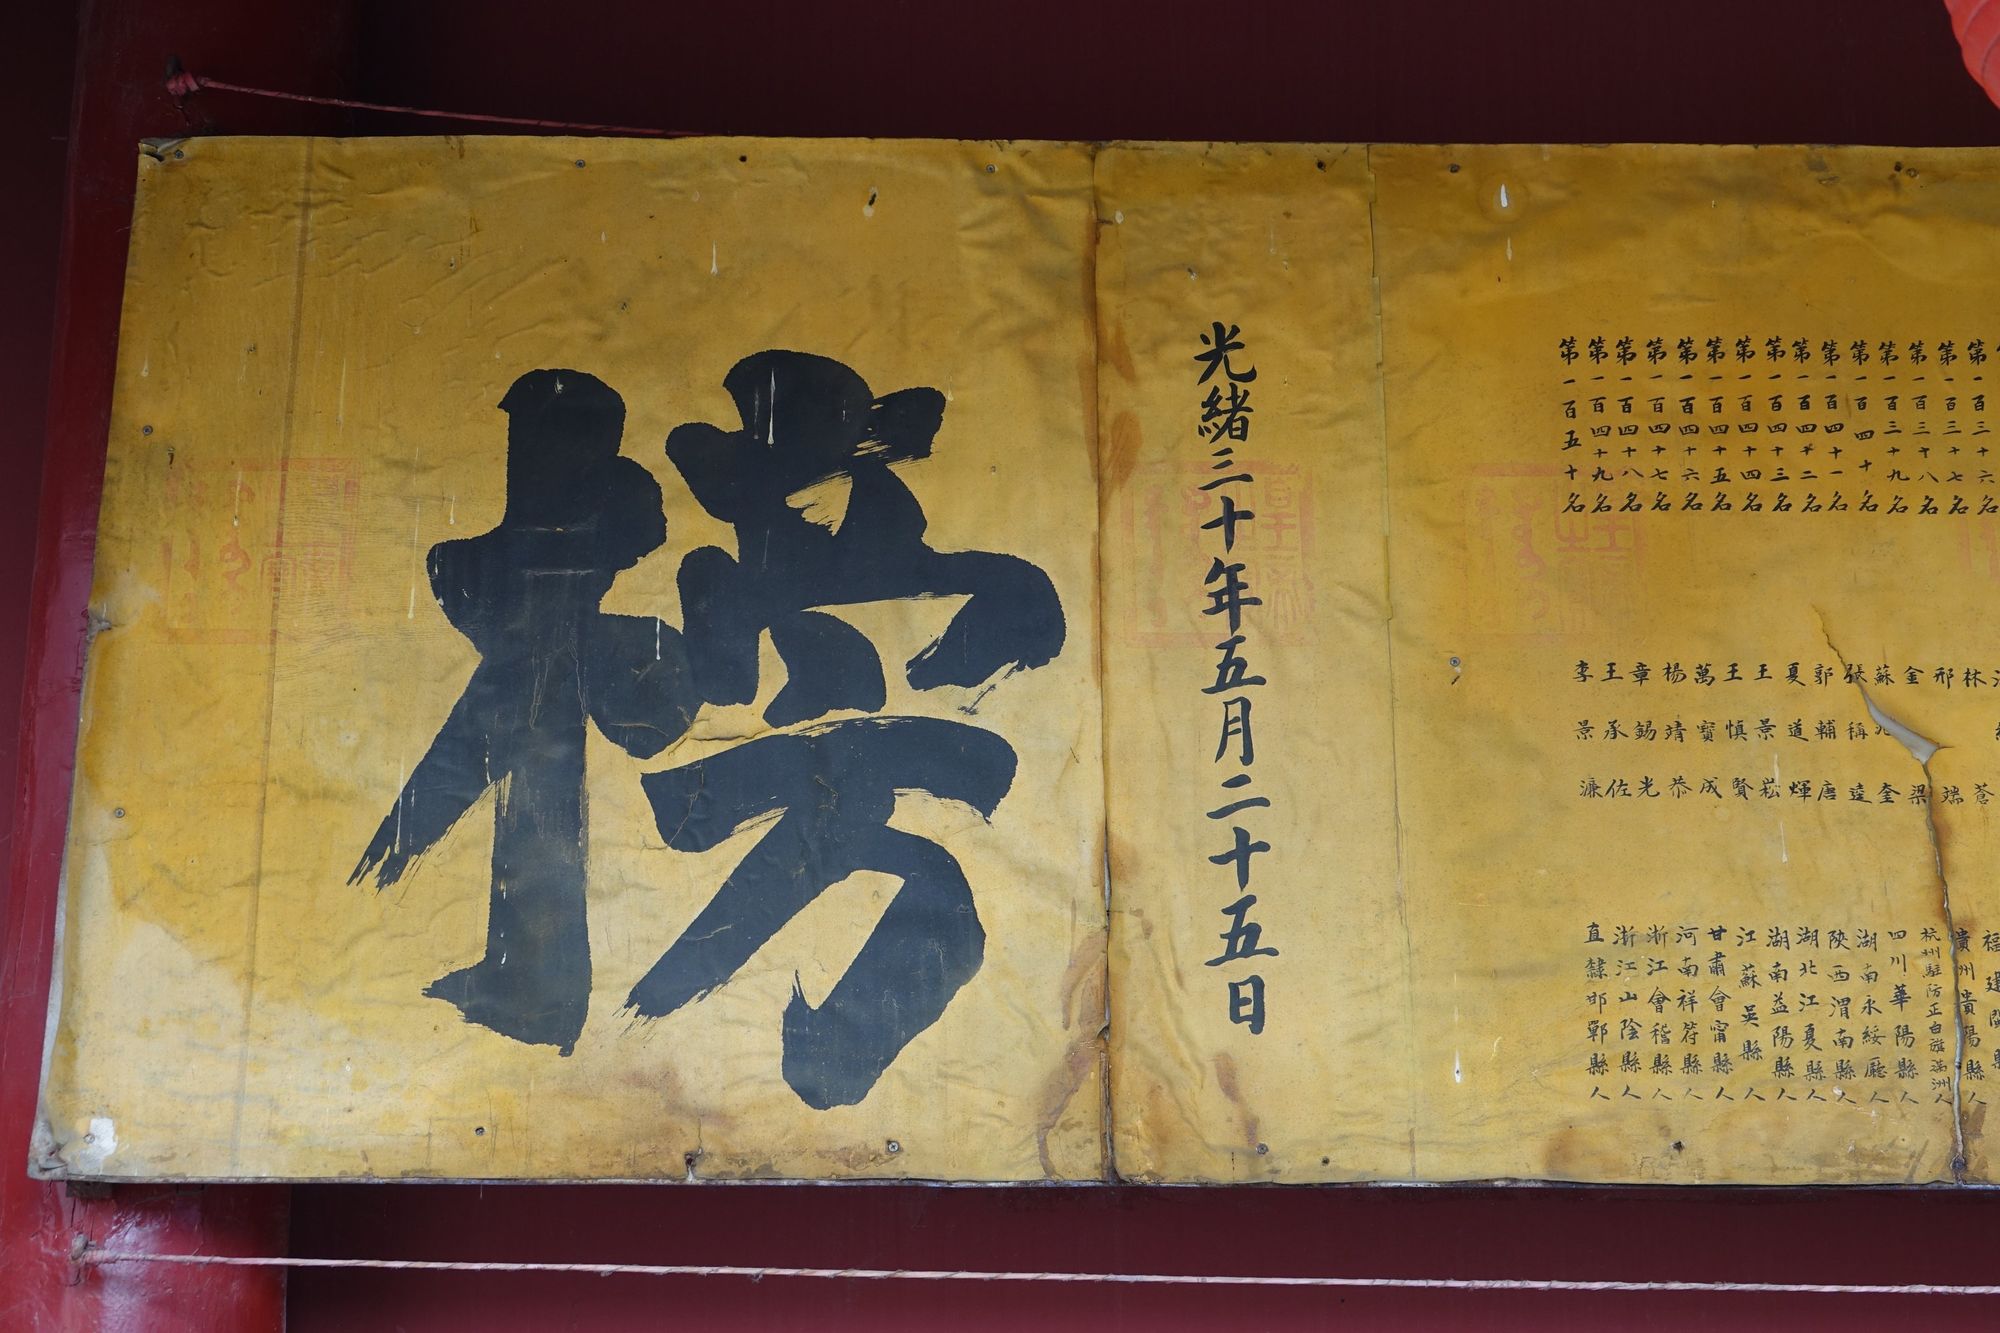 第一百三十六名
第一百三十七名 林 蒼 福建閩縣
第一百三十八名 邢端 貴州貴陽縣人
第一百三十九名 金梁 杭州駐防正白旗滿洲人
第一百四十名 蘇兆奎 四川華陽縣人
第一百四十一名 張稱逵 湖南永綏廳人
第一百四十二名 郭輔唐 陝西渭南縣人
第一百四十三名 夏道輝 湖北江夏縣人
第一百四十四名 王景崧 湖南益陽縣人
第一百四十五名 王慎賢 江蘇吳縣人
第一百四十六名 萬寶成 甘肅會甯縣人
第一百四十七名 楊靖恭 河南祥符縣人
第一百四十八名 章錫光 浙江會稽縣人
第一百四十九名 王承佐 浙江山陰縣人
第一百五十名 李景濂 直隸邯鄲縣人
光緒三十年五月二十五日
榜